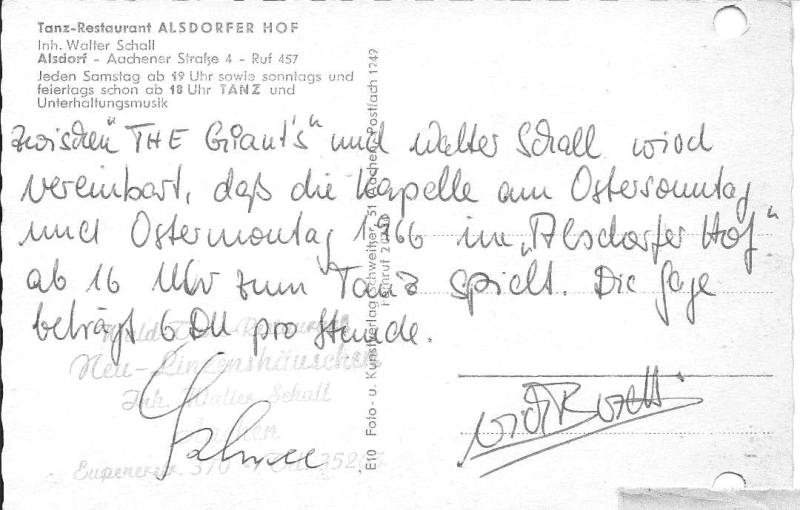 Tanz-Restaurant ALSDORFER HOF
Inh. Walter Schall
Alsdorf - Aachener Straße 4 - Ruf 457
Jeden Samstag ab 19 Uhr sowie sonntags und
feiertags schon ab 18 Uhr TANZ und
Unterhaltungsmusik
zwischen "THE Giant's" und Walter Schall wird
vereinbart, daß die Kapelle am Ostersonntag
und Ostermontag 1966 im „Alsdorfer Hof"
ab 16 Uhr zum Tanz spielt. Die Gage
beträgt 6 DM pro Stunde.
Neu-Linzenshäuschen
Inh. Walter Schall
Aachen
Eupenerstr. 370
E10 Foto- u. Kunstverlag Schweitzer, 51 Aachen, Postfach 1249
Fernruf